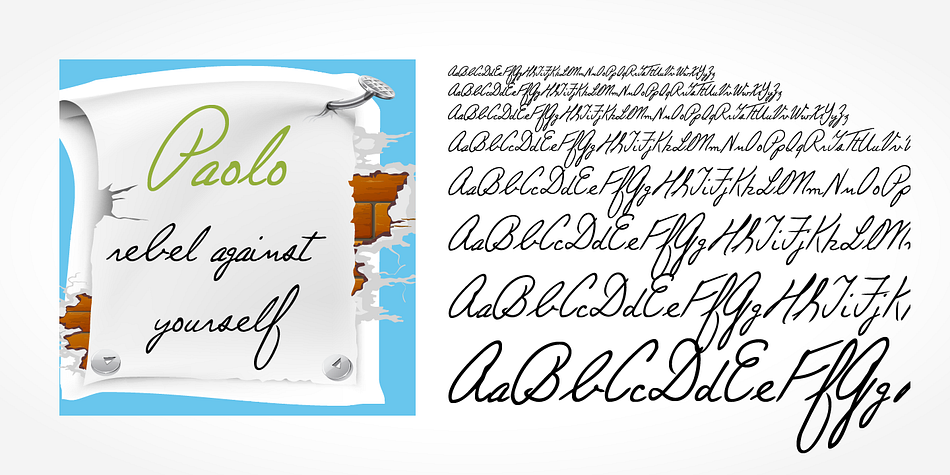 Paolo
rebel against
yourself
AaBbCcDdEeFfGgHhIiJjKkLlMmNnOoPpQqRrSsTtUuVvWwXxYyZz
AaBbCcDdEeFfGgHhIiJjKkLlMmNnOoPpQqRrSsTtUuVvWwXxYyZz
AaBbCcDdEeFfGgHhIiJjKkLlMmNnOoPpQqRrSsTtUuVvWwXxYyZz
AaBbCcDdEeFfGgHhIiJjKkLlMmNnOoPpQqRrSsTtUuVv
AaBbCcDdEeFfGgHhIiJjKkLlMmNnOoPp
AaBbCcDdEeFfGgHhIiJjKkLlM
AaBbCcDdEeFfGgHhIiJjK
AaBbCcDdEeFfGg